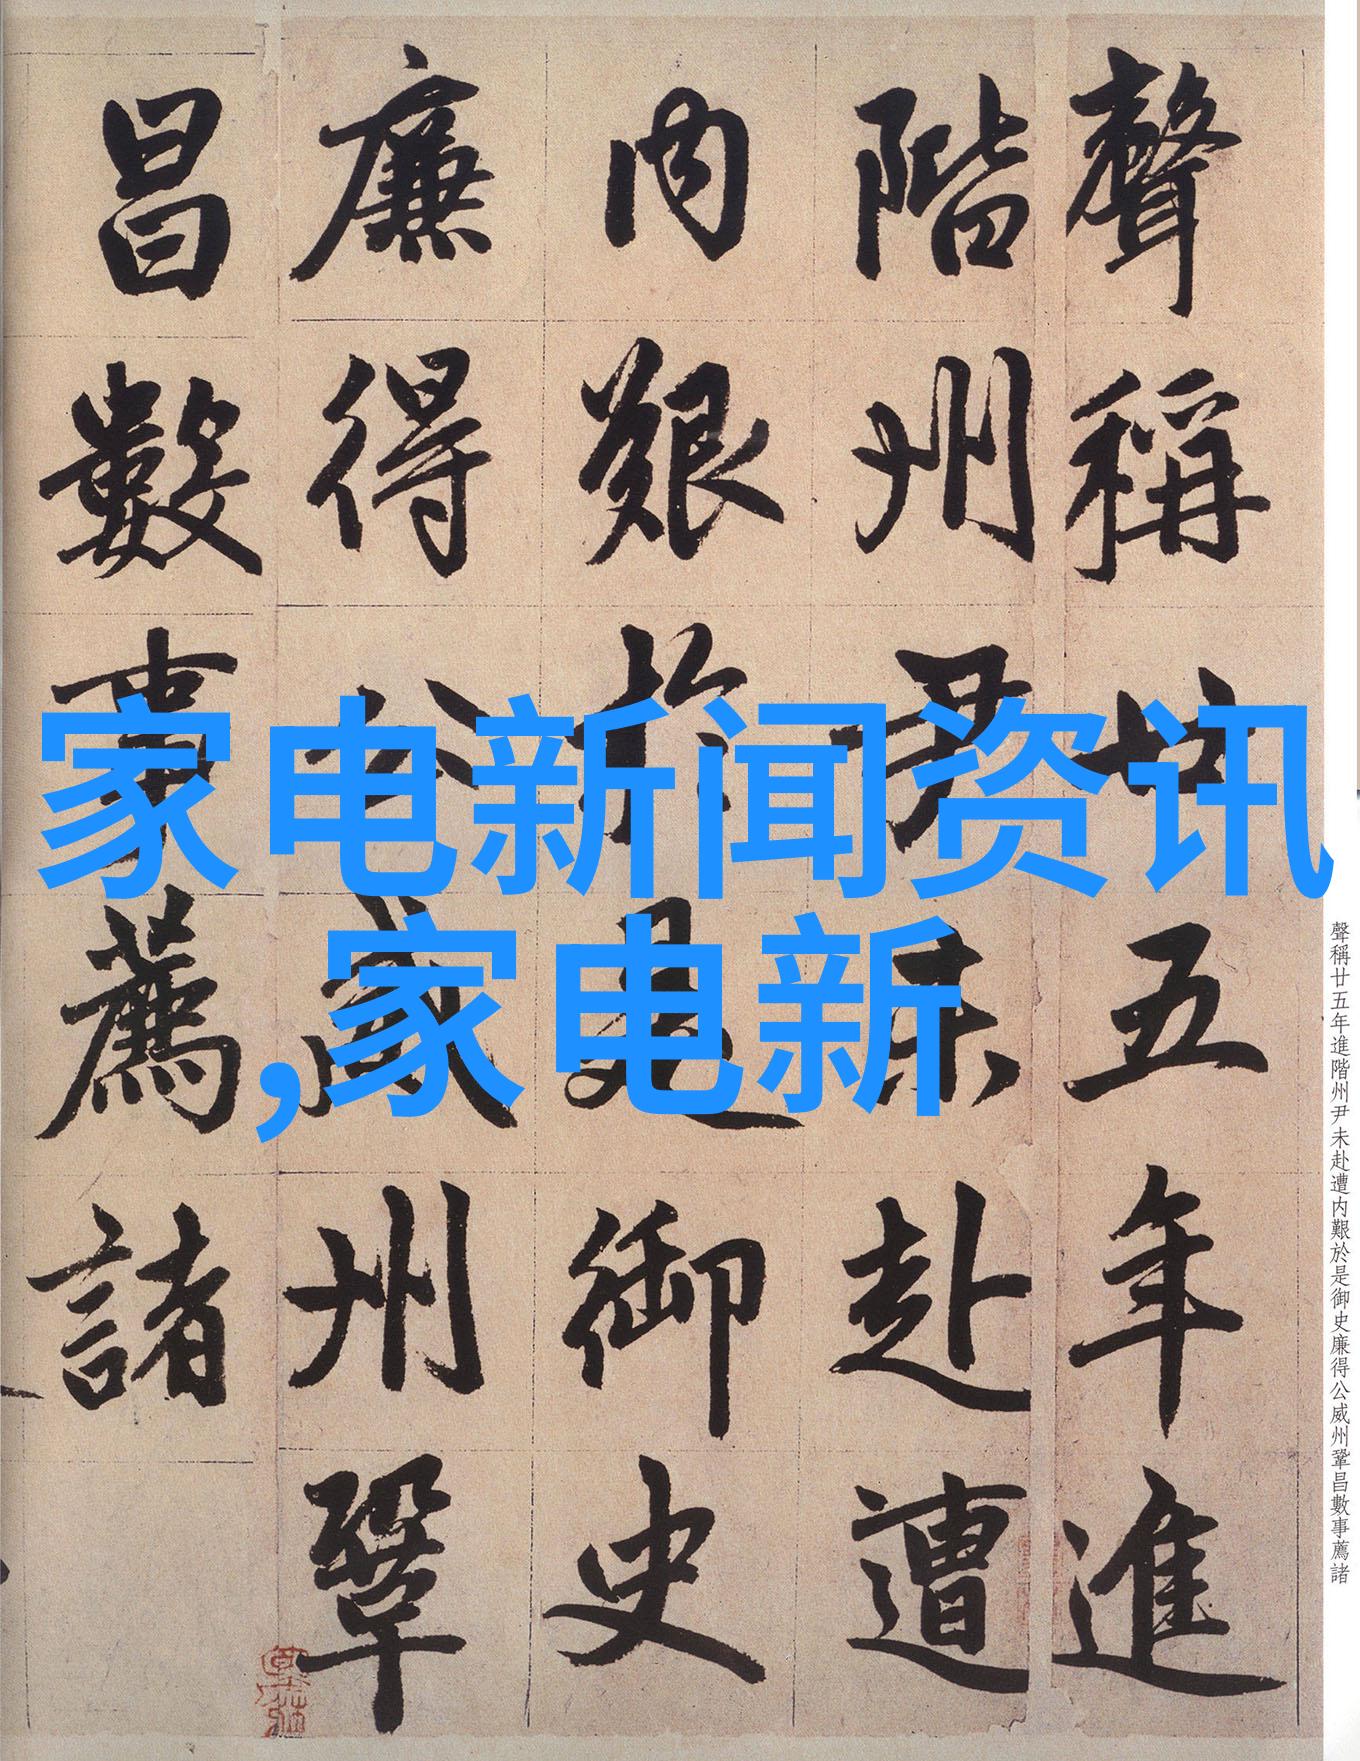 聲稱廿五年進
階州尹未赴遭
内艱於是御史
廉得公威州鞏
昌數事薦諸
家电新闻资讯
,家电新
聲稱廿五年進階州尹未赴遭内艱於是御史廉得公威州鞏昌數事薦諸